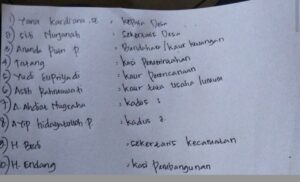 1) Yana kardiana. SE : kepala Desa
2) Siti Nurjanah : Sekertaris Desa
3) Ananda Putri P : Bendahara / kaur keuangan
4) Tatang : kasi pemerintahan
5) Yudi Supriyadi : kaur perencanaan
6) Asih Rahmawati : kaur tata usaha & umum
7) A. Ahdiat Nugraha : kadus 1
8) Ayip hidayatulloh P : kadus 2.
9) H. Dedi : sekertaris kecamatan
10) H. Endang : kasi pembangunan